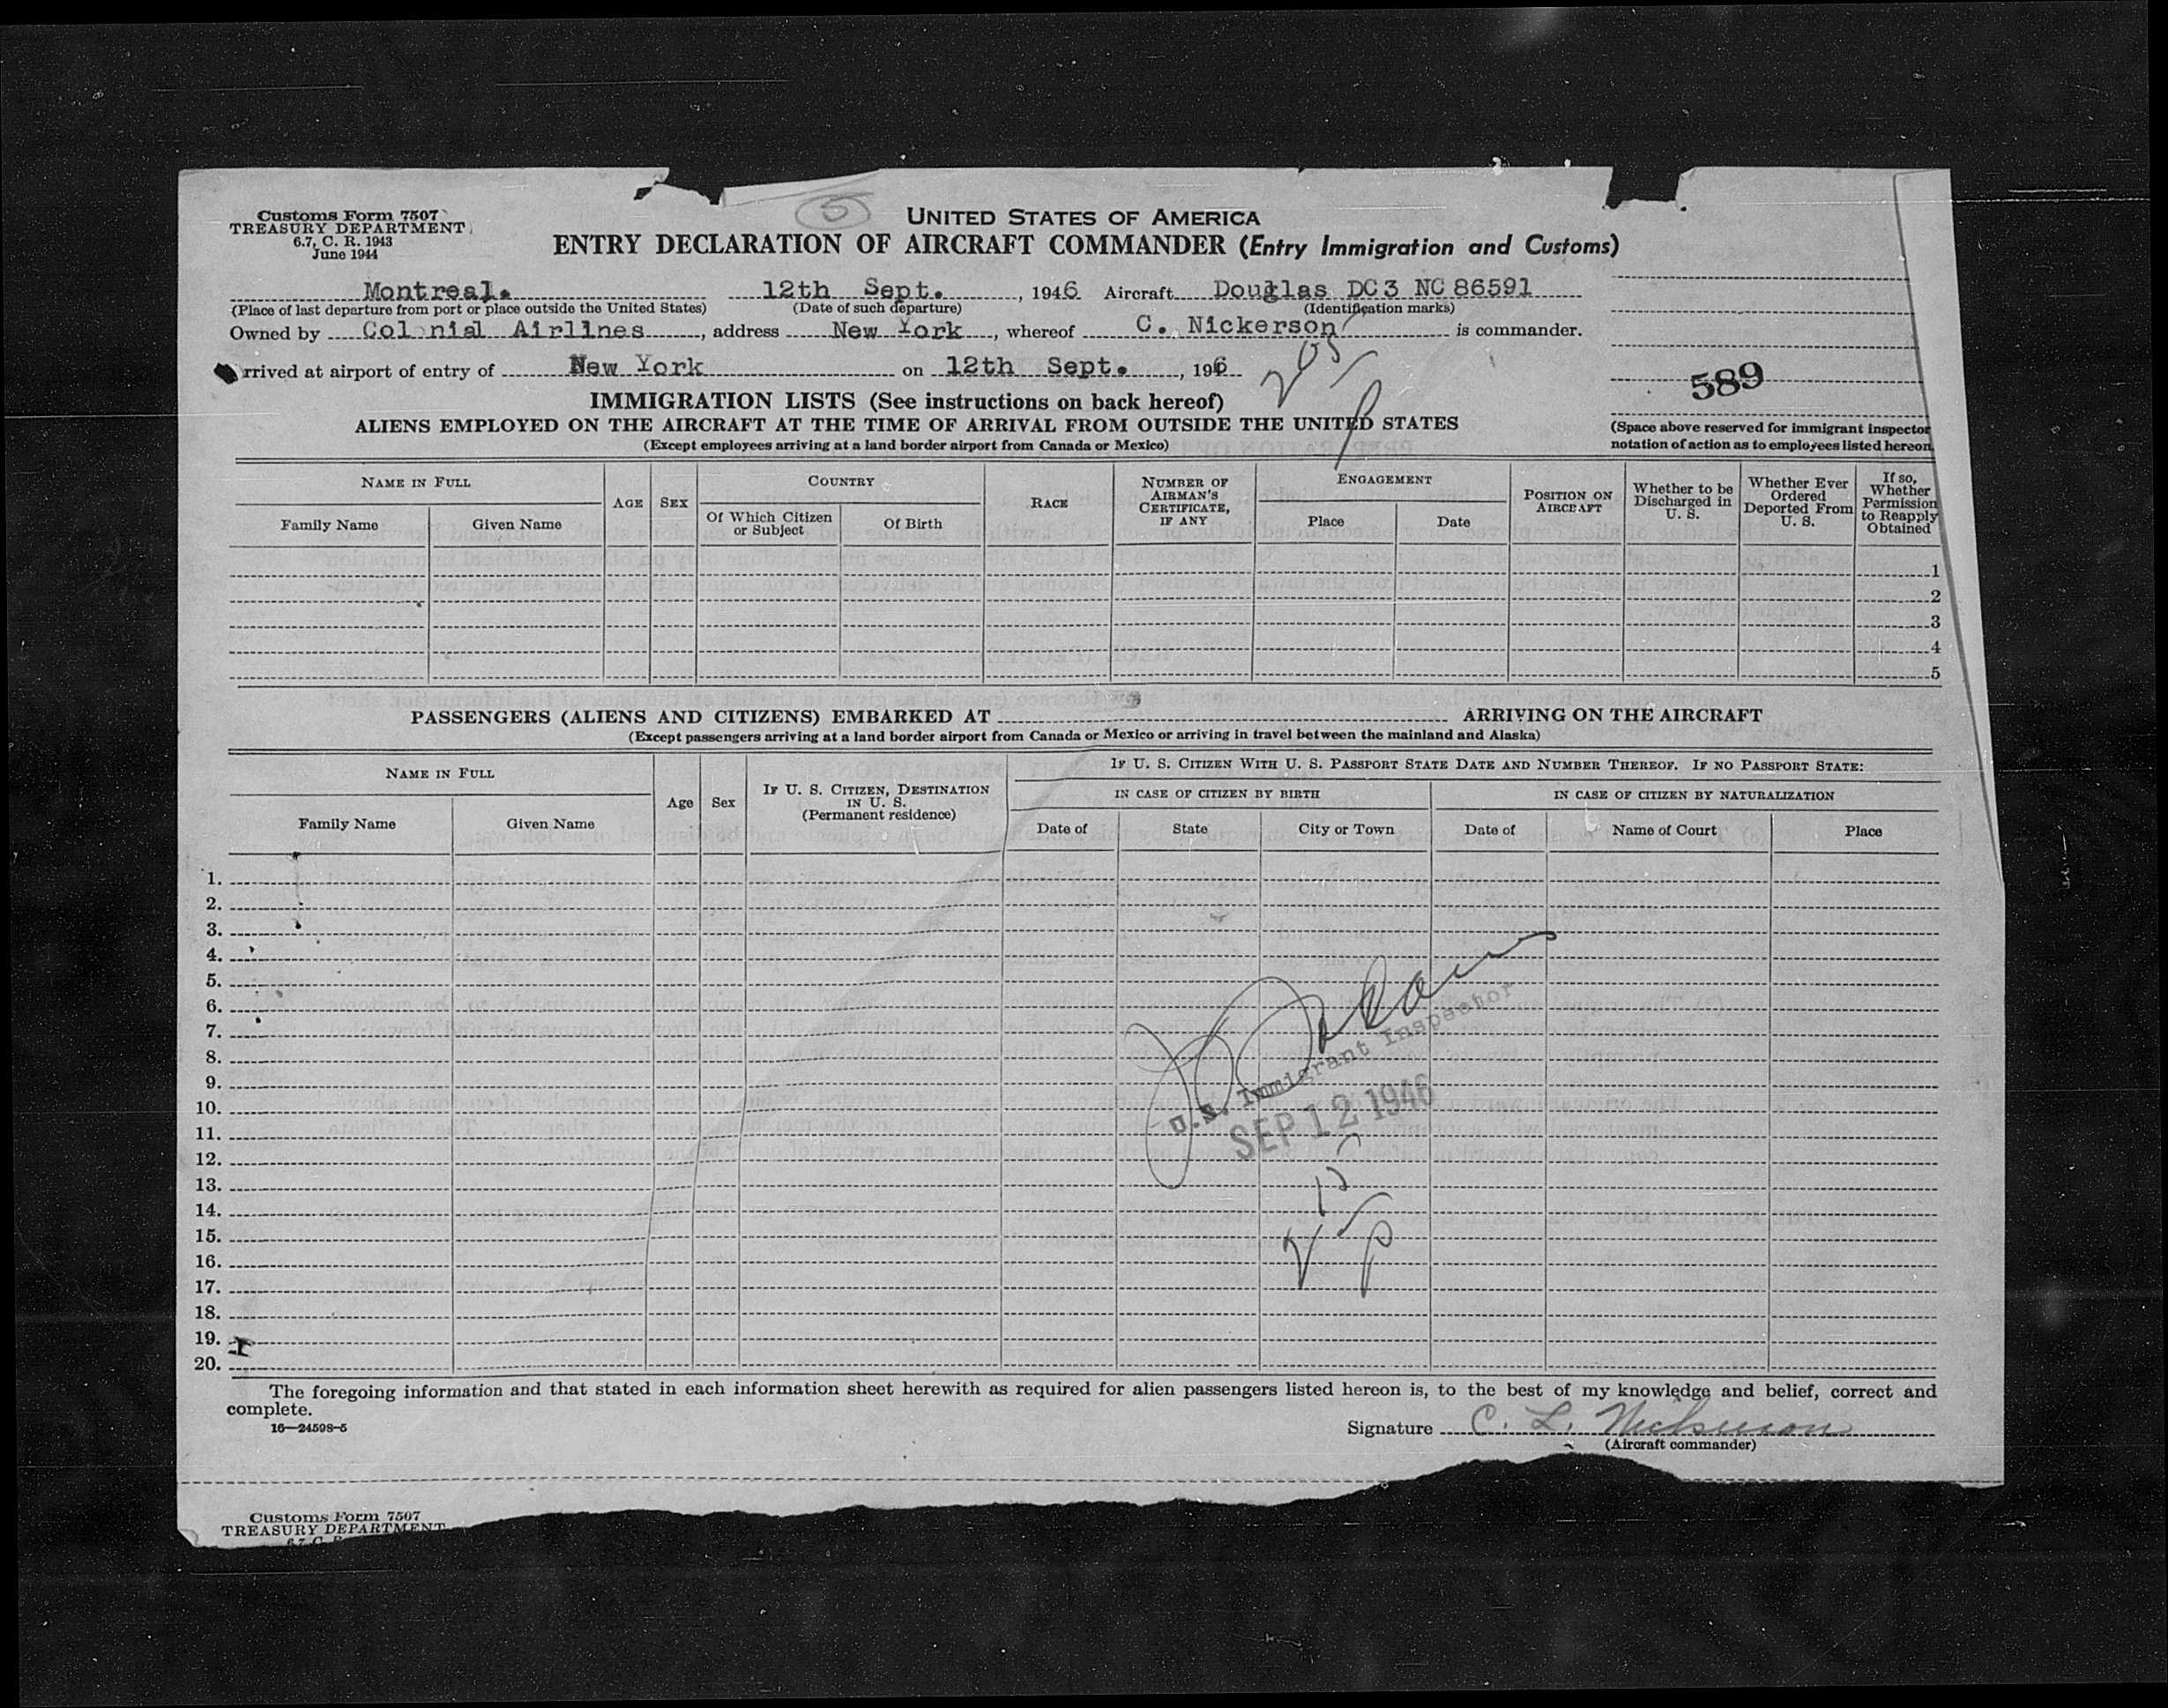 5
Customs Form 7507
TREASURY DEPARTMENT
6.7, C. R. 1943
June 1944
UNITED STATES OF AMERICA
ENTRY DECLARATION OF AIRCRAFT COMMANDER (Entry Immigration and Customs)
Montreal. 12th Sept. , 1946 Aircraft Douglas DC3 NC86591
(Place of last departure from port or place outside the United States) (Date of such departure) (Identification marks)
Owned by Colonial Airlines , address New York , whereof C. Nickerson is commander.
rrived at airport of entry of New York on 12th Sept. , 196
589
IMMIGRATION LISTS (See instructions on back hereof)
ALIENS EMPLOYED ON THE AIRCRAFT AT THE TIME OF ARRIVAL FROM OUTSIDE THE UNITED STATES
(Except employees arriving at a land border airport from Canada or Mexico)
(Space above reserved for immigrant inspector
notation of action as to employees listed hereon
NAME IN FULL
Family Name Given Name
AGE SEX
COUNTRY
Of Which Citizen or Subject Of Birth
RACE
NUMBER OF AIRMAN'S CERTIFICATE, IF ANY
ENGAGEMENT
Place Date
POSITION ON AIRCRAFT
Whether to be Discharged in U. S.
Whether Ever Ordered Deported From U. S.
If so, Whether Permission to Reapply Obtained
1
2
3
4
5
PASSENGERS (ALIENS AND CITIZENS) EMBARKED AT ARRIVING ON THE AIRCRAFT
(Except passengers arriving at a land border airport from Canada or Mexico or arriving in travel between the mainland and Alaska)
NAME IN FULL
Family Name Given Name
Age Sex
IF U. S. CITIZEN, DESTINATION IN U. S.
(Permanent residence)
IF U. S. CITIZEN WITH U. S. PASSPORT STATE DATE AND NUMBER THEREOF. IF NO PASSPORT STATE:
IN CASE OF CITIZEN BY BIRTH IN CASE OF CITIZEN BY NATURALIZATION
Date of State City or Town Date of Name of Court Place
1.
2.
3.
4.
5.
6.
7.
8.
9.
10.
11.
12.
13.
14.
15.
16.
17.
18.
19.
20.
U.S. Immigrant Inspector
SEP 12 1946
The foregoing information and that stated in each information sheet herewith as required for alien passengers listed hereon is, to the best of my knowledge and belief, correct and
complete.
16—24598-5
Signature C. L. Nickerson
(Aircraft commander)
Customs Form 7507
TREASURY DEPARTMENT